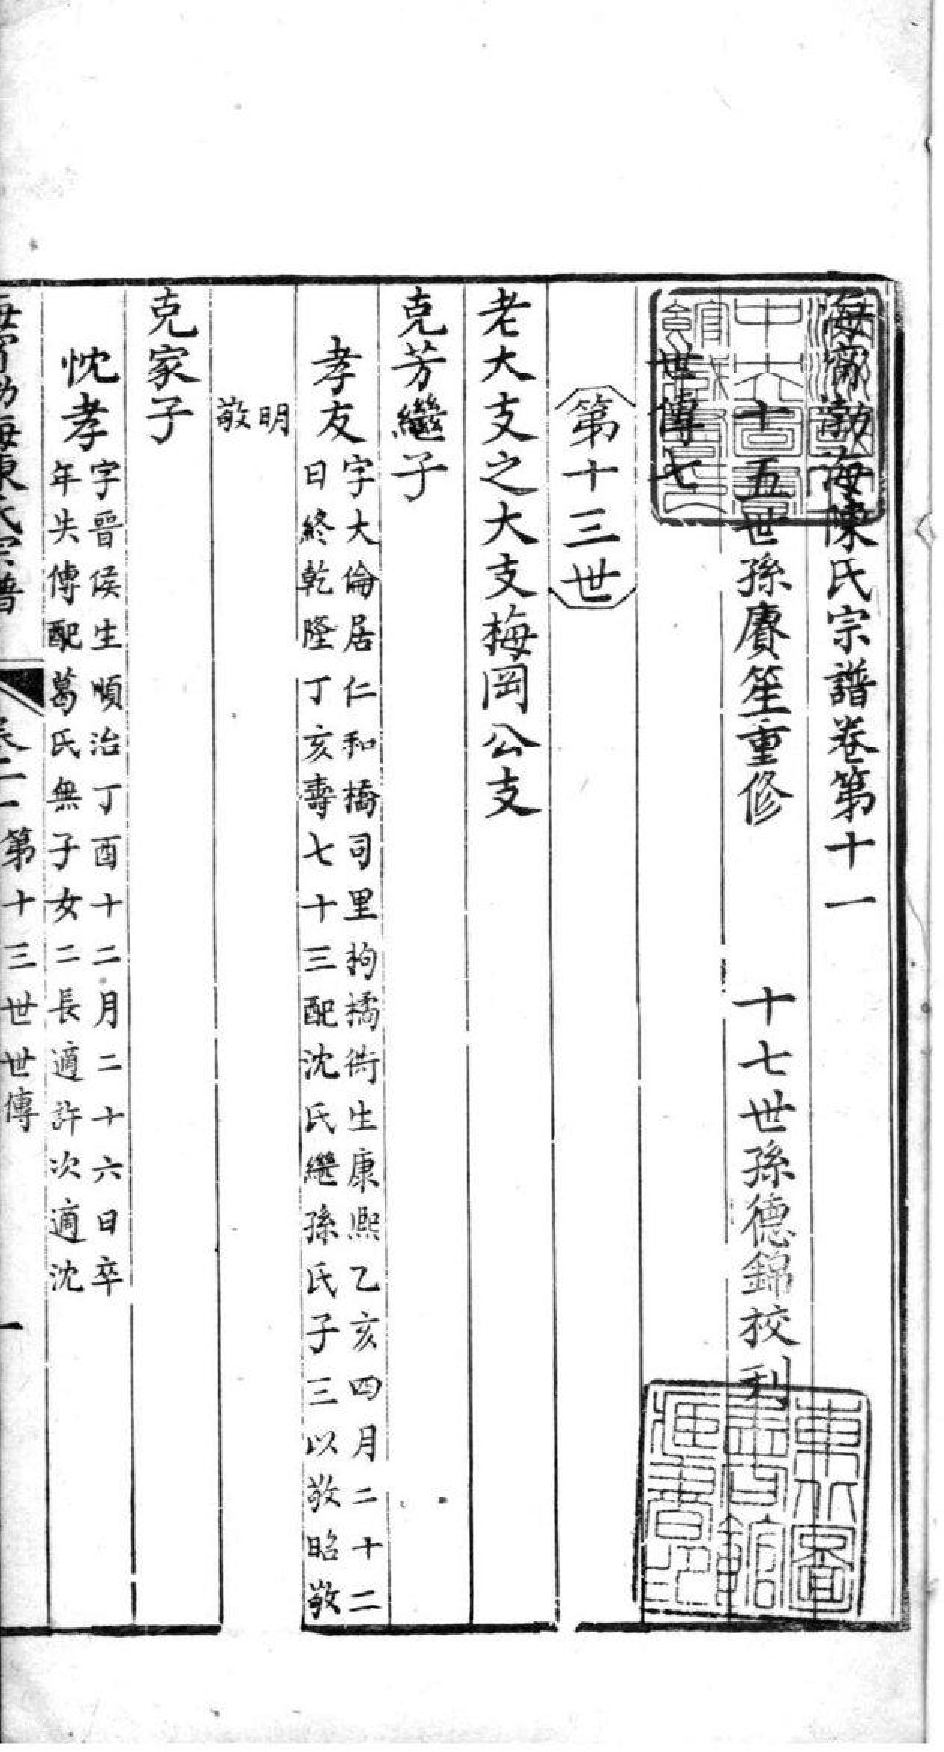 海甯渤海陳氏宗譜卷第十一
十五世孫賡笙重修　十七世孫德錦校刊
世傳七
第十三世
老大支之大支梅岡公支
克芳繼子
孝友
字大倫居仁和橋司里枸橘衖生康熙乙亥四月二十二
日終乾隆丁亥壽七十三配沈氏繼孫氏子三以敬昭敬
明
敬
克家子
忱孝
字晉侯生順治丁酉十二月二十六日卒
年失傳配葛氏無子女二長適許次適沈
海甯渤海陳氏宗譜 卷十一第十三世世傳 一